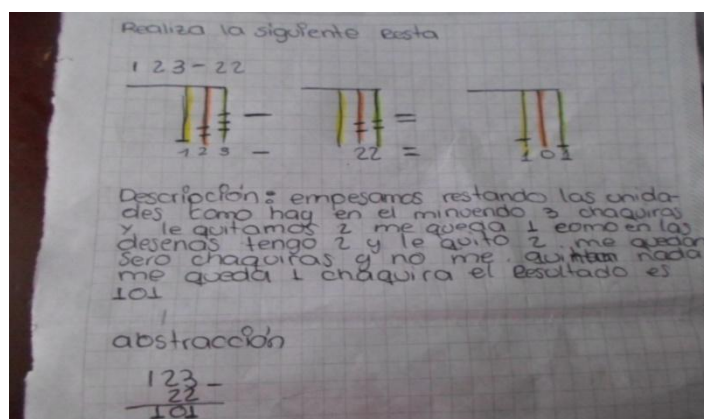 Realiza la siguiente resta
123-22
123 - 22 = 101
Descripción: empesamos restando las unida-
des como hay en el minuendo 3 chaquiras
y le quitamos 2 me queda 1 como en las
desenas tengo 2 y le quito 2 me quedan
sero chaquiras y no me quitam nada
me queda 1 chaquira el resultado es
101
abstracción
123 -
22
101